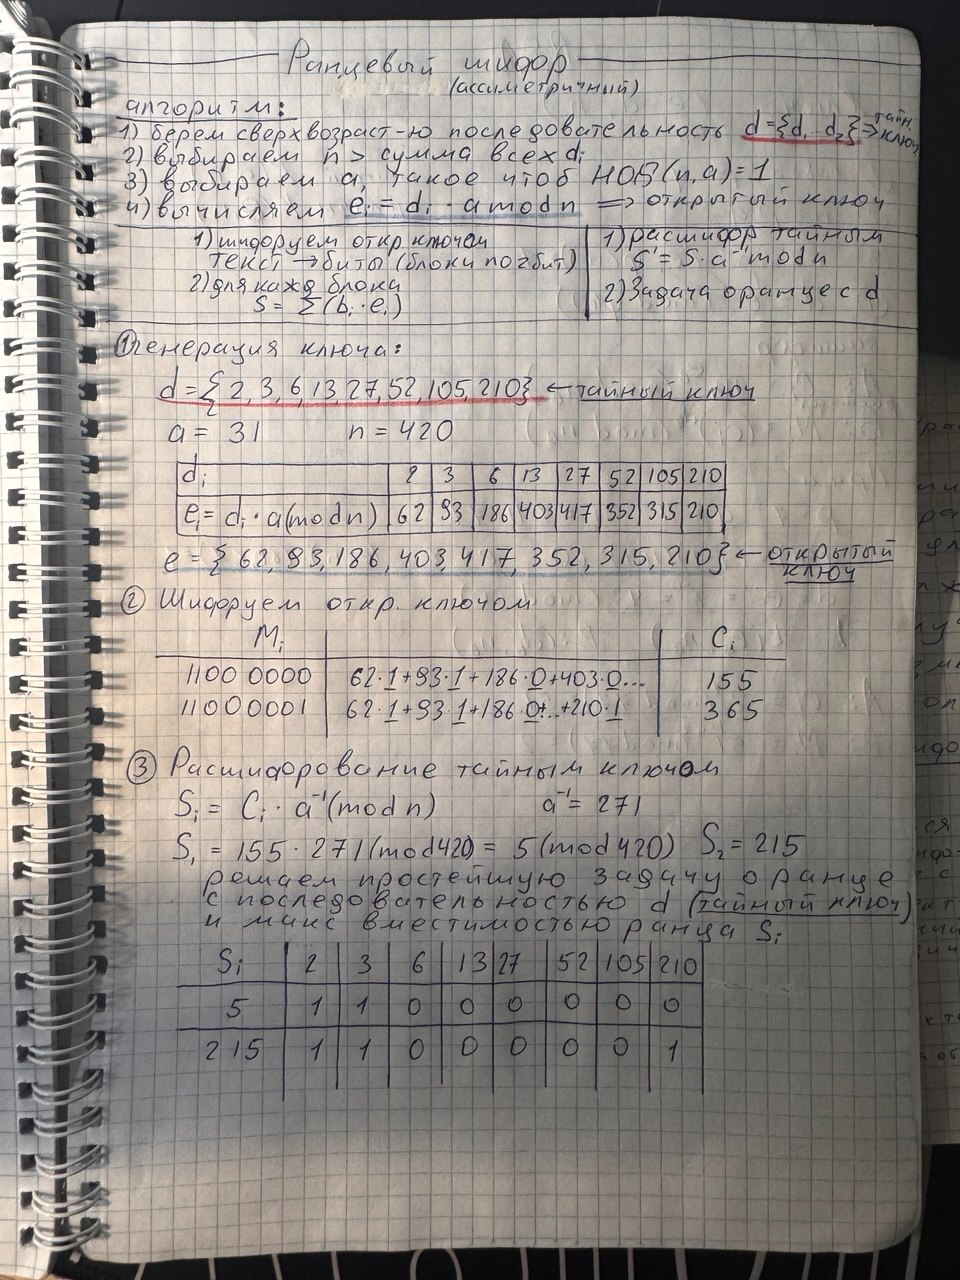 Ранцевый шифр
(ассиметричный)
алгоритм:
1) берем сверхвозраст-ю последовательность d={d₁..d₂} => тайн. ключ
2) выбираем n > сумма всех dᵢ
3) выбираем a, такое чтоб НОД(n,a)=1
4) вычисляем eᵢ = dᵢ · a mod n => открытый ключ
1) шифруем откр ключом
текст → биты (блоки по 8 бит)
2) для кажд блока
S = Σ(bᵢ·eᵢ)
1) расшифр тайным
S' = S·a⁻¹ mod n
2) Задача о ранце с d
① Генерация ключа:
d = {2, 3, 6, 13, 27, 52, 105, 210} ← тайный ключ
a = 31 n = 420
dᵢ 2 3 6 13 27 52 105 210
eᵢ = dᵢ · a (mod n) 62 93 186 403 417 352 315 210
e = {62, 93, 186, 403, 417, 352, 315, 210} ← открытый ключ
② Шифруем откр. ключом
Mᵢ Cᵢ
1100 0000 62·1+93·1+186·0+403·0... 155
11000001 62·1+93·1+186·0+..+210·1 365
③ Расшифрование тайным ключом
Sᵢ = Cᵢ · a⁻¹ (mod n) a⁻¹ = 271
S₁ = 155 · 271 (mod 420) = 5 (mod 420) S₂ = 215
решаем простейшую задачу о ранце
с последовательностью d (тайный ключ)
и макс вместимостью ранца Sᵢ
Sᵢ 2 3 6 13 27 52 105 210
5 1 1 0 0 0 0 0 0
215 1 1 0 0 0 0 0 1